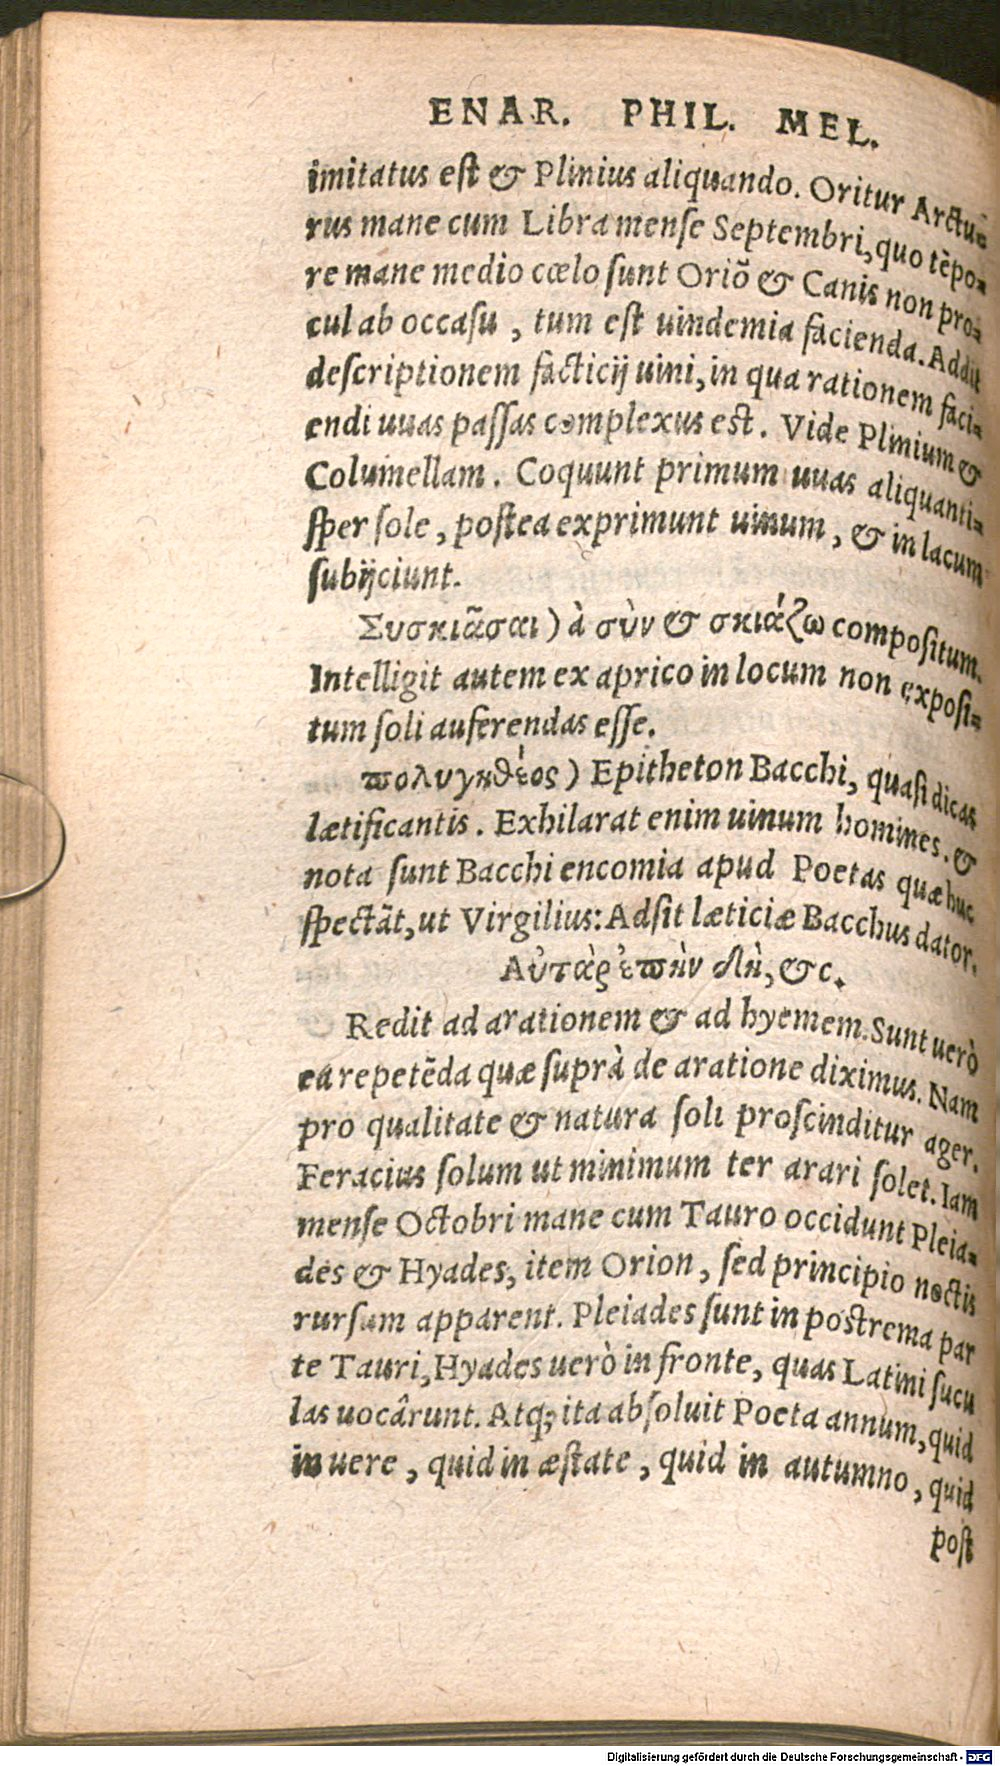 ENAR. PHIL. MEL.
imitatus est & Plinius aliquando. Oritur Arctu-
rus mane cum Libra mense Septembri, quo tẽpo-
re mane medio cœlo sunt Oriõ & Canis non pro-
cul ab occasu, tum est uindemia facienda. Addit
descriptionem facticij uini, in qua rationem faci-
endi uuas passas complexus est. Vide Plinium &
Columellam. Coquunt primum uuas aliquanti-
sper sole, postea exprimunt uinum, & in lacum
subijciunt.
Συσκιᾶσαι) à σὺν & σκιάζω compositum.
Intelligit autem ex aprico in locum non exposi-
tum soli auferendas esse.
πολυγηθέος) Epitheton Bacchi, quasi dicas
lætificantis. Exhilarat enim uinum homines. &
nota sunt Bacchi encomia apud Poetas quæ huc
spectãt, ut Virgilius: Adsit læticiæ Bacchus dator.
Αὐτὰρ ἐπὴν δὴ, &c.
Redit ad arationem & ad hyemem. Sunt uerò
ea repetẽda quæ suprà de aratione diximus. Nam
pro qualitate & natura soli proscinditur ager.
Feracius solum ut minimum ter arari solet. Iam
mense Octobri mane cum Tauro occidunt Pleia-
des & Hyades, item Orion, sed principio noctis
rursum apparent. Pleiades sunt in postrema par
te Tauri, Hyades uerò in fronte, quas Latini sucu
las uocârunt. Atq; ita absoluit Poeta annum, quid
in uere, quid in æstate, quid in autumno, quid
post
Digitalisierung gefördert durch die Deutsche Forschungsgemeinschaft - DFG